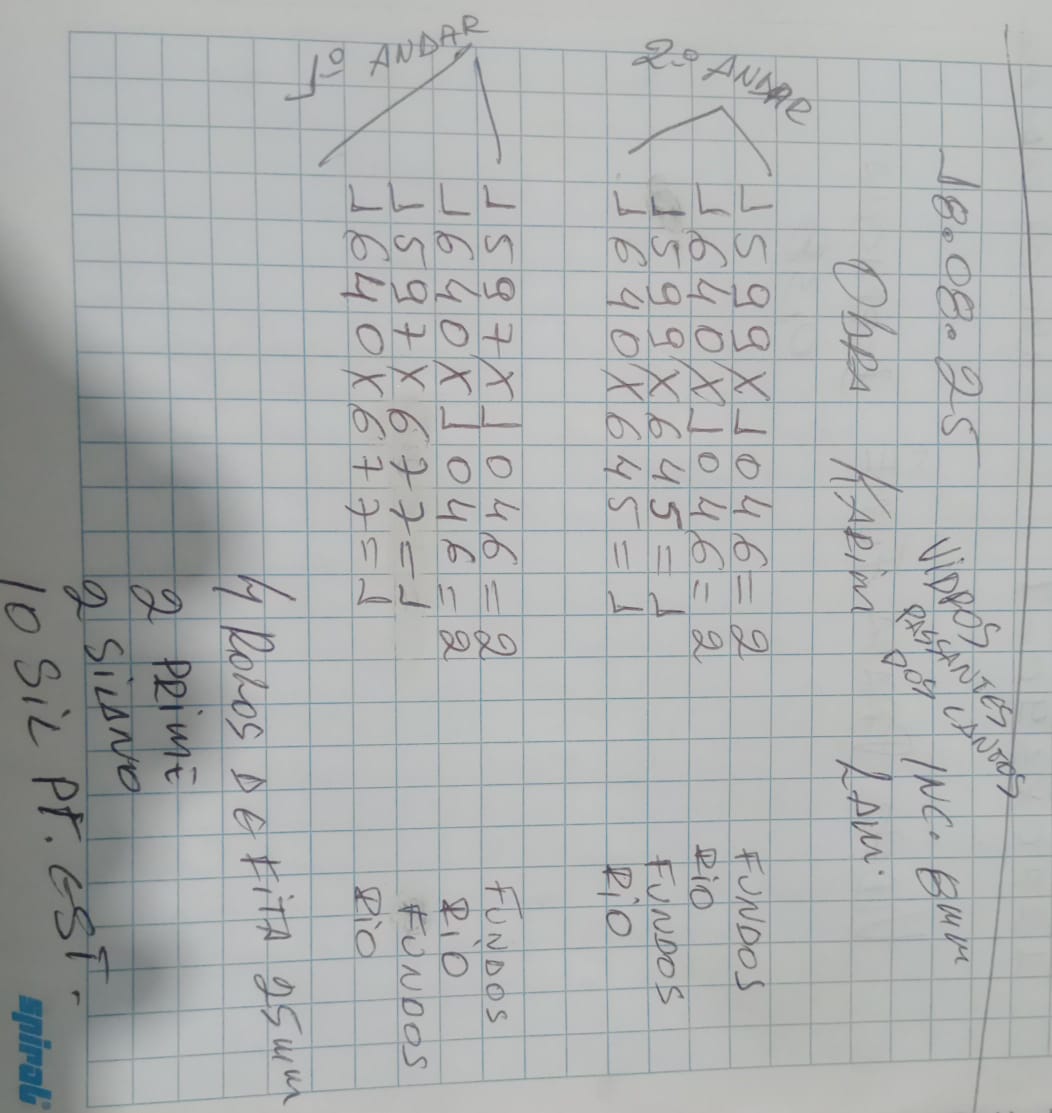 18.08.25 VIDROS INC. 8mm
PASSANTES
DOS CANTOS
Obra KARIM LAM.
2º ANDAR
1599X1046=2 FUNDOS
1640X1046=2 RIO
1599X645=1 FUNDOS
1640X645=1 RIO
1º ANDAR
1597X1046=2 FUNDOS
1640X1046=2 RIO
1597X677=1 FUNDOS
1640X677=1 RIO
4 Rolos DE FITA 25mm
2 PRIME
2 SILANO
10 SIL PT. EST.
spiral